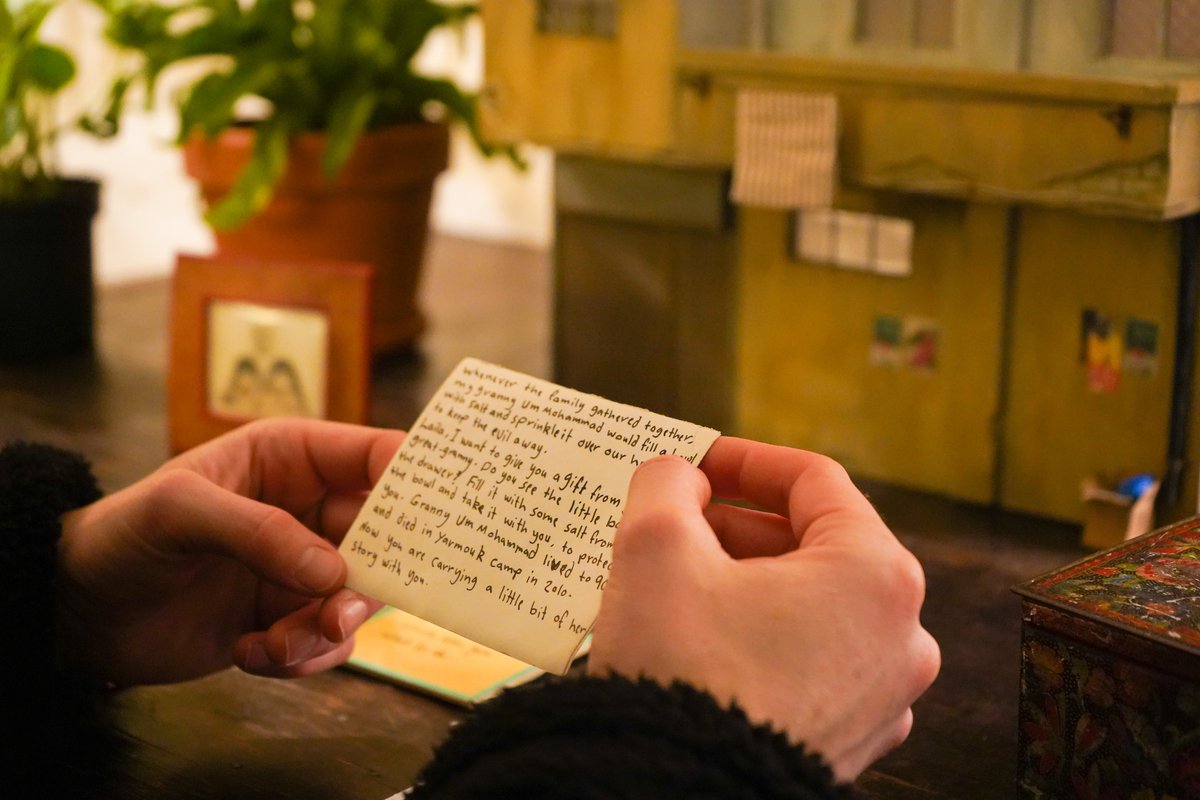 whenever the family gathered together,
my granny Um Mohammad would fill a bowl
with salt and sprinkle it over our
to keep the evil away.
Laila, I want to give you a gift from
great-granny. Do you see the little
the drawer? Fill it with some salt from
the bowl and take it with you, to
you. Granny Um Mohammad lived to
and died in Yarmouk Camp in 2010.
Now you are carrying a little bit of her
story with you.